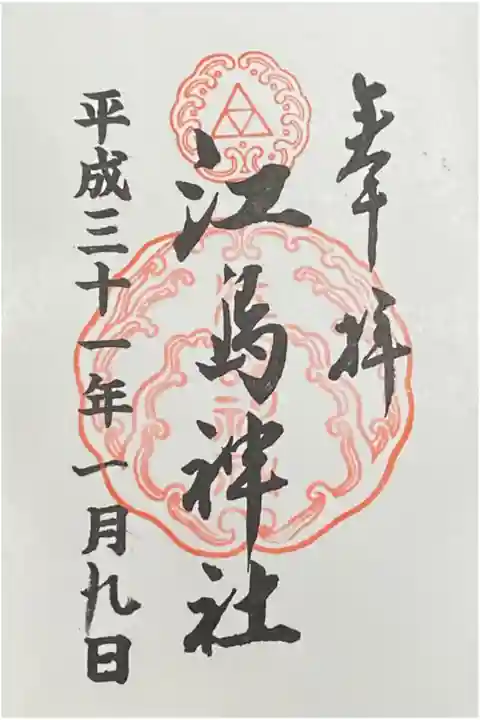 奉拝
江島神社
平成三十一年一月九日